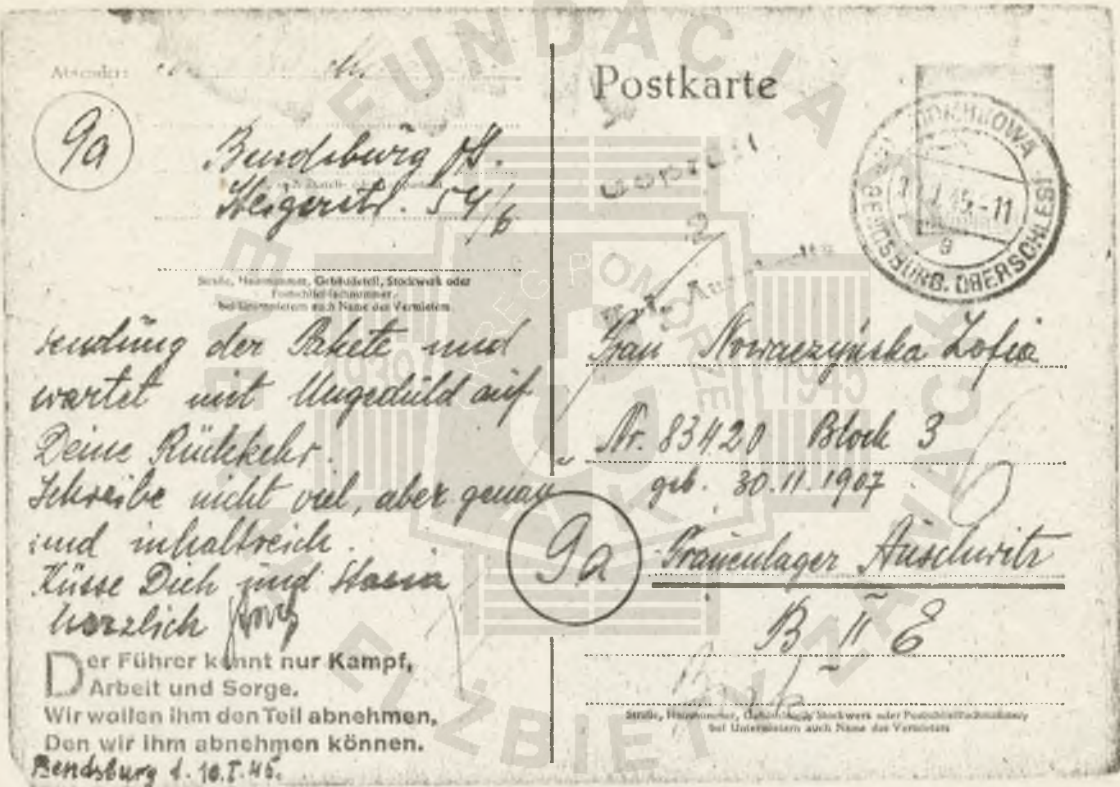 Absender:
9a
Bendsburg OS.
Steigerstr. 54/6
Straße, Hausnummer, Gebäudeteil, Stockwerk oder
Postschließfachnummer
bei Untermietern auch Name des Vermieters
sendung der Pakete und
wartet mit Ungeduld auf
Deine Rückkehr.
Schreibe nicht viel, aber genau
und inhaltreich.
Küsse Dich und Stasia
herzlich
Der Führer kennt nur Kampf,
Arbeit und Sorge.
Wir wollen ihm den Teil abnehmen,
Den wir ihm abnehmen können.
Bendsburg d. 10.I.45.
Postkarte
Geprüft
2
BENDSBURG. OBERSCHLES
45-11
g
Frau Nowaczyńska Zofia
Nr. 83420 Block 3
geb. 30.11.1907
9a
Frauenlager Auschwitz
B II E
Straße, Hausnummer, Gebäudeteil, Stockwerk oder Postschließfachnummer
bei Untermietern auch Name des Vermieters
FUNDACJA
GENERAŁ ELŻBIETY ZAWACKIEJ
POMORZE
1939
1945
AK